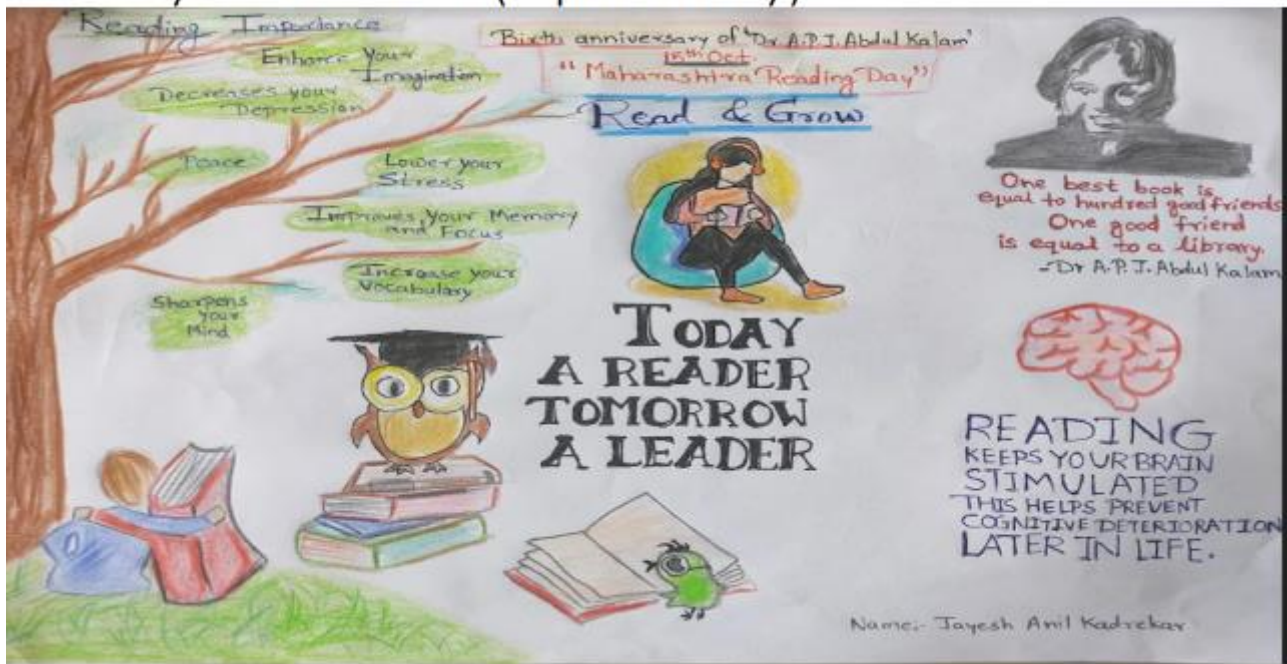 Reading Importance
Enhance your
Imagination
Decreases your
Depression
Peace
Lower your
Stress
Improves your Memory
and Focus
Increase your
Vocabulary
Sharpens
your
Mind
Birth anniversary of "Dr A.P.J. Abdul Kalam"
15th Oct.
"Maharashtra Reading Day"
Read & Grow
TODAY
A READER
TOMORROW
A LEADER
One best book is
equal to hundred good friends
One good friend
is equal to a library.
-Dr A.P.J. Abdul Kalam
READING
KEEPS YOUR BRAIN
STIMULATED
THIS HELPS PREVENT
COGNITIVE DETERIORATION
LATER IN LIFE.
Name:- Jayesh Anil Kadrekar